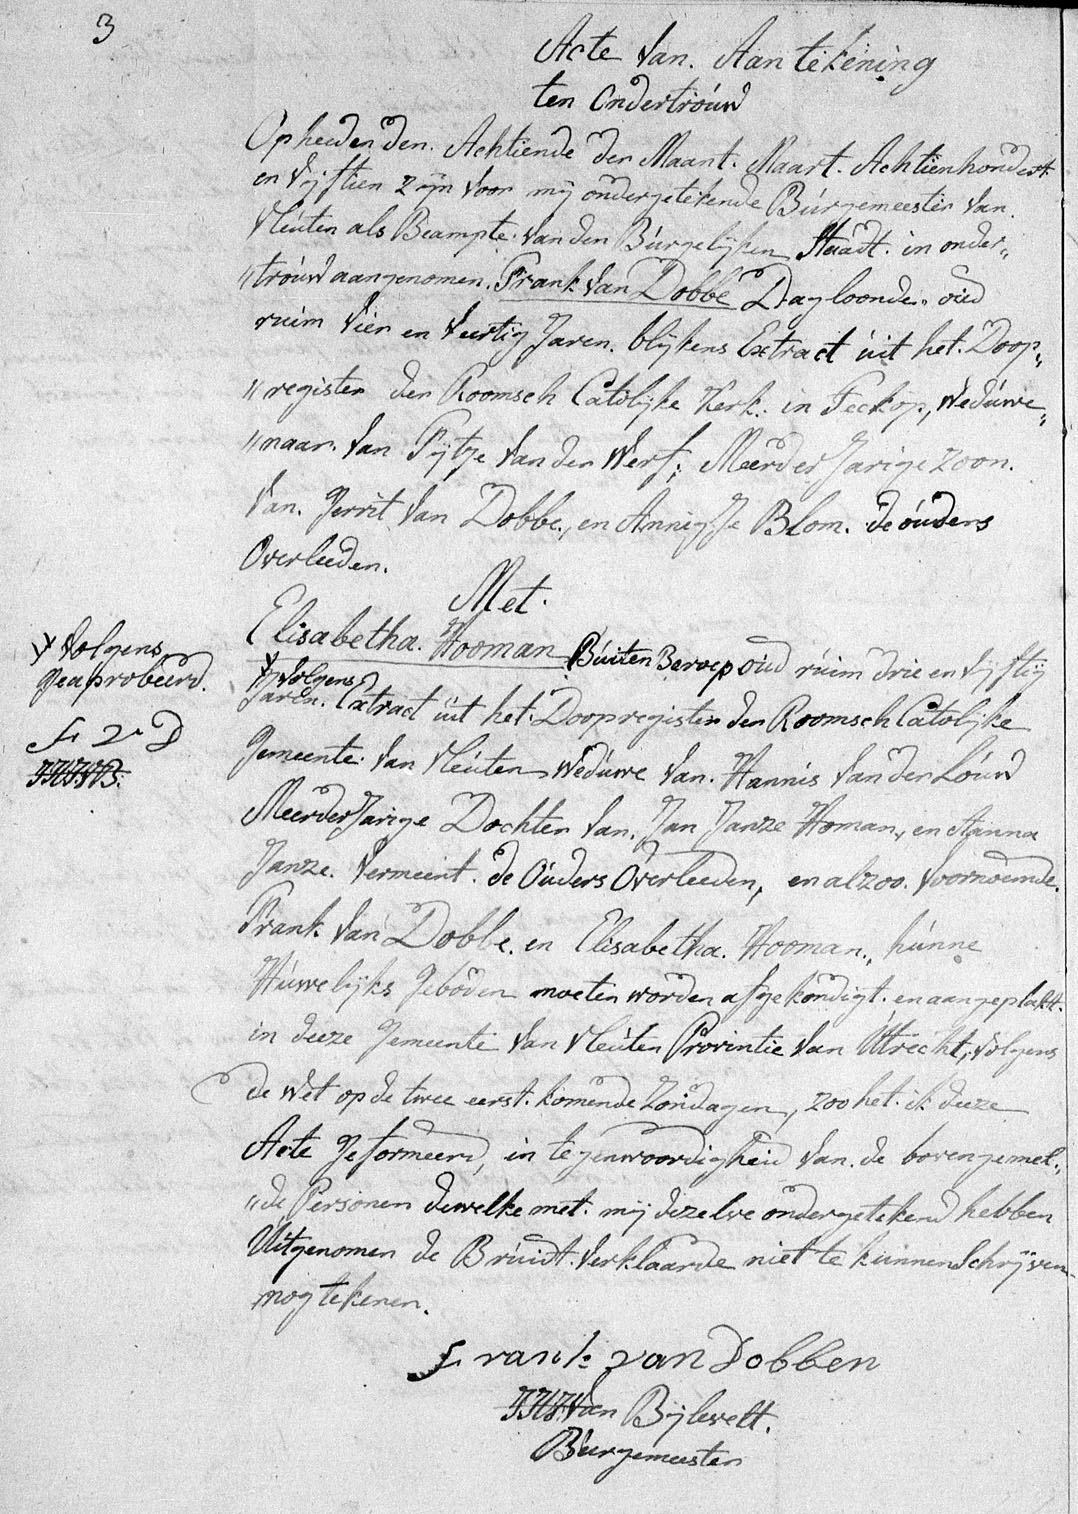 3
Acte van. Aantekening
ten Ondertrouw
Opheeden den. Achtiende der Maant. Maart. Achtienhondert
en Vijftien zijn voor mij ondergetekende Burgemeester van
Vleuten als Beampte. van den Burgelijken Staadt. in onder„
„trouw aangenomen. Frank van Dobbe Dagloonde. oud
ruim Vier en Veertig Jaren. blijkens Extract uit het. Doop„
„register der Roomsch Catolijke Kerk. in Feckop, Weduwe„
„naar. van Fijtje van der Werf; Meerder Jarige Zoon.
van. Gerrit van Dobbe, en Annigje Blom. de ouders
Overleeden.
Met.
Elisabetha. Hooman Buiten Beroep oud ruim drie en Vijftig
Ɏ Volgens
Jaren. Extract uit het. Doopregister der Roomsch Catolijke
Gemeente. van Vleuten Weduwe van. Hannis van der Louw
Meerder Jarige Dochter van. Jan Janze Homan, en Anna
Janze. Vermeint. de Ouders Overleeden, en alzoo. voornoemde.
Frank van Dobbe. en Elisabetha. Hooman., hunne
Huwelijks Geboden moeten worden afgekondigt. en aangeplakt.
in deeze Gemeente van Vleuten Provintie van Utrecht, volgens
de Wet op de twee eerst. komende Zondagen, zoo het. ik deeze
Acte Geformeerd, in tegenwoordigheid van. de bovengemel„
„de Personen dewelke met. mij dezelve ondergetekend hebben
Uitgenomen de Bruidt. Verklaarde niet te kunnen Schrijven
nog tekenen.
Frank van Dobben
JHJ. van Bijlevelt.
Burgemeester
Ɏ Volgens
Geaprobeerd.
F v D
JHJVB.